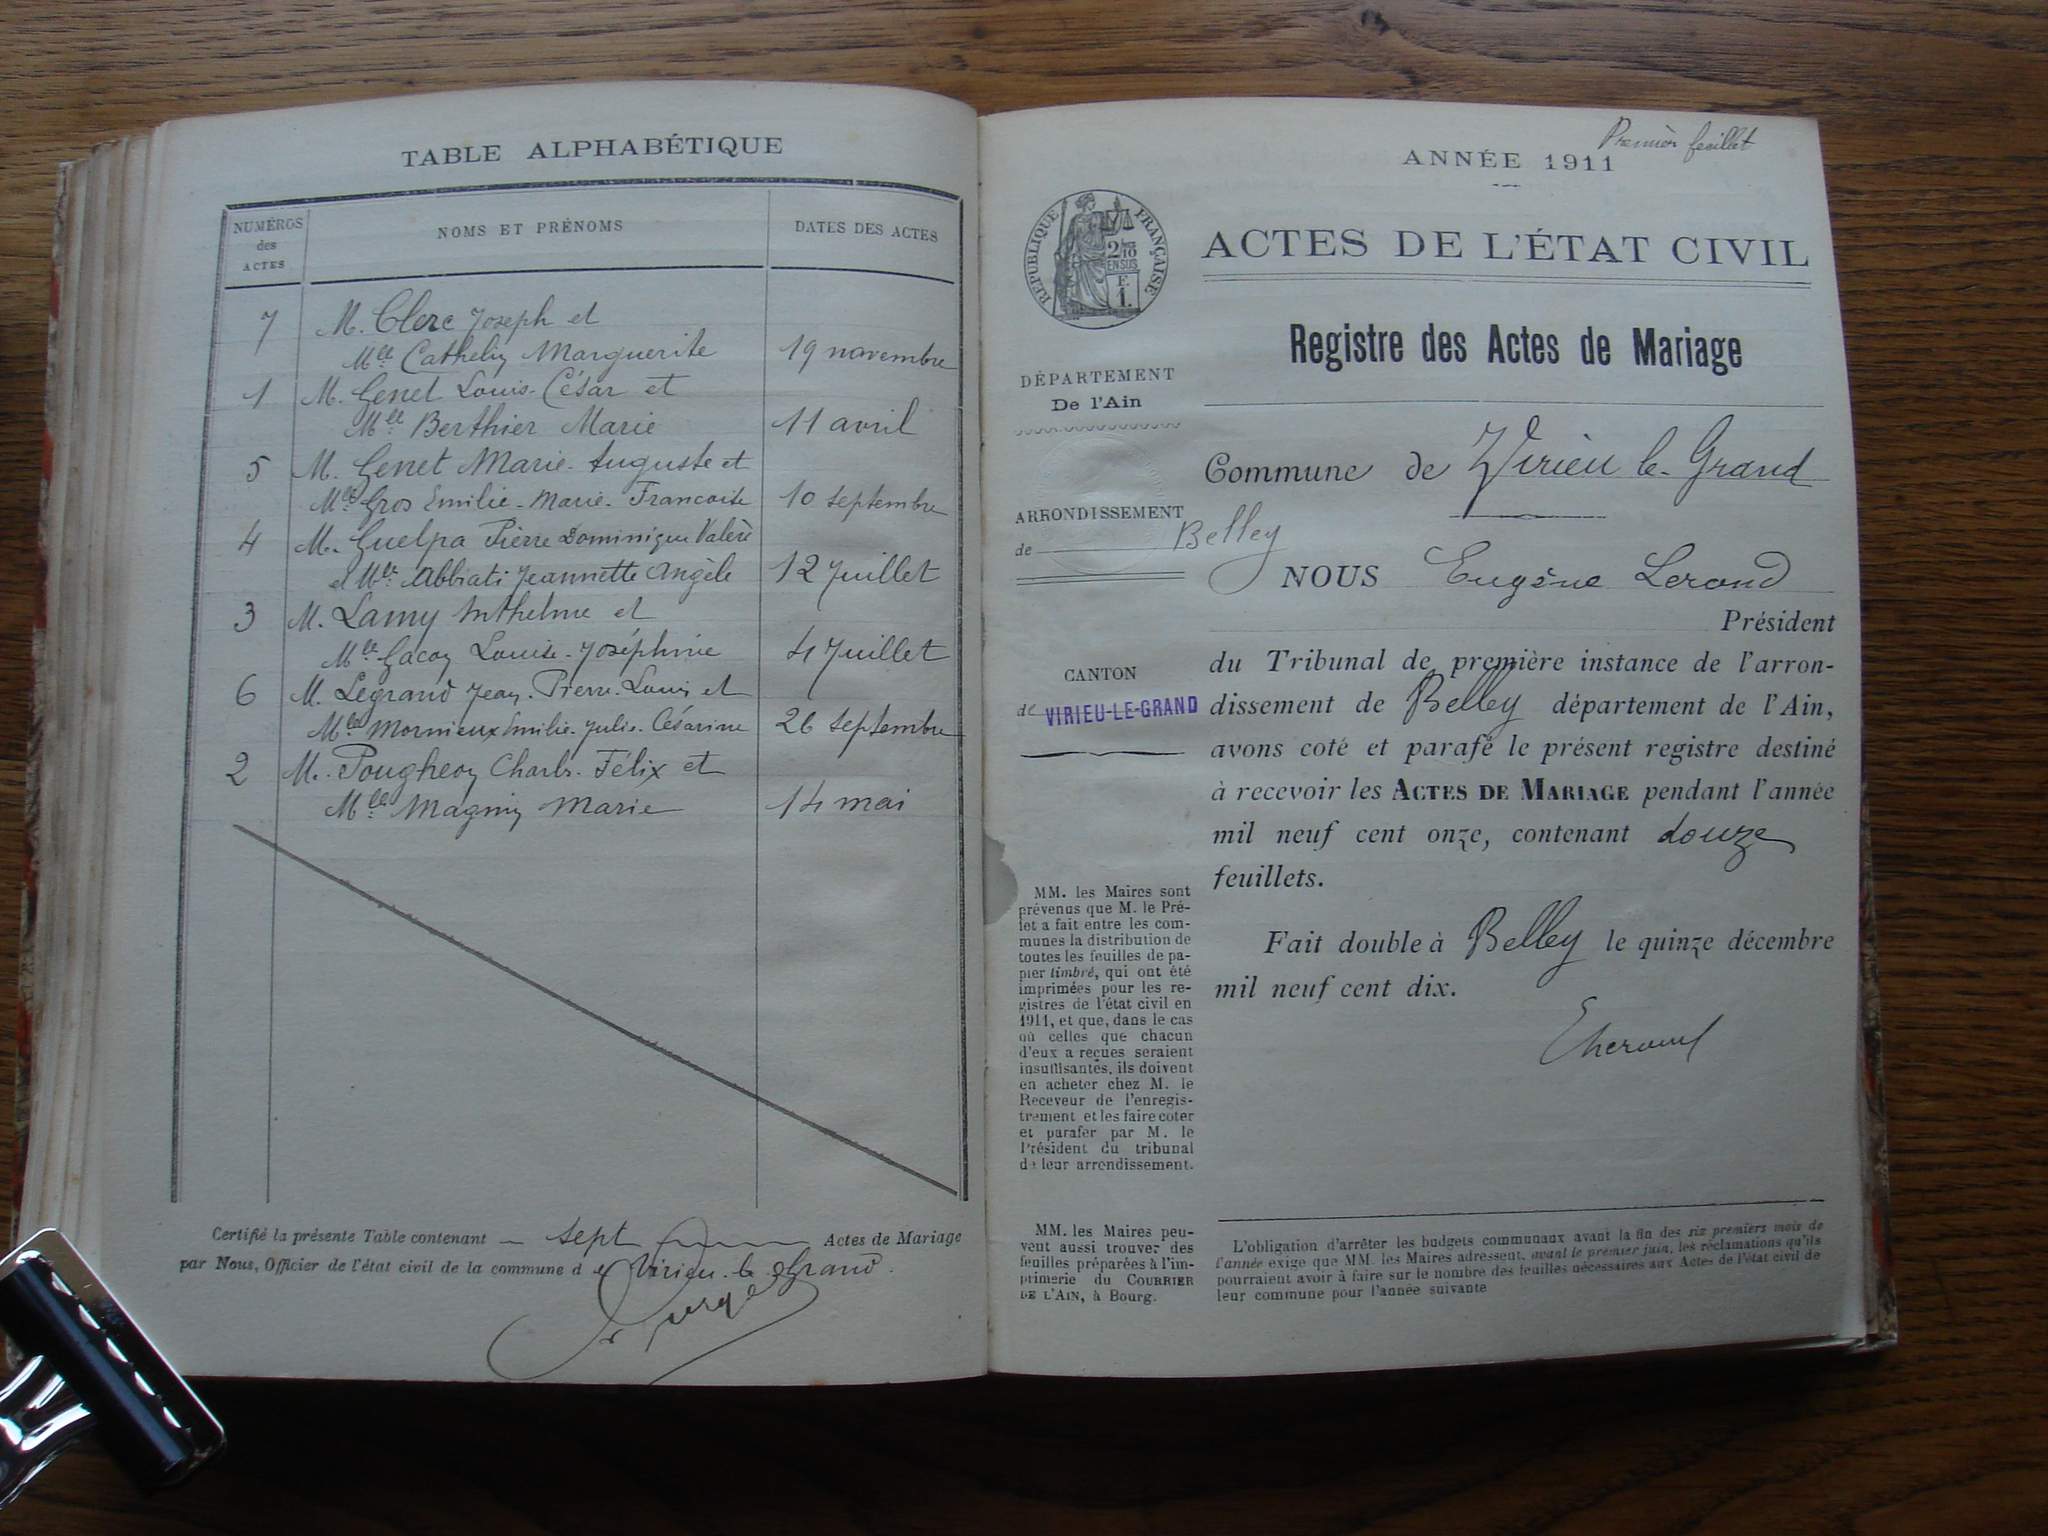 TABLE ALPHABÉTIQUE
NUMÉROS des ACTES
NOMS ET PRÉNOMS
DATES DES ACTES
7 M. Clerc Joseph et
Mlle Cathelin Marguerite 19 novembre
1 M. Genet Louis-César et
Mlle Berthier Marie 11 avril
5 M. Genet Marie-Auguste et
Mlle Gros Emilie-Marie-Francoise 10 septembre
4 M. Guelpa Pierre Dominique Valère
et Mlle Abbiati Jeannette Angèle 12 Juillet
3 M. Lamy Anthelme et
Mlle Gacon Louise-Joséphine 4 Juillet
6 M. Legrand Jean-Pierre-Louis et
Mlle Mornieux Emilie-Julie-Césarine 26 septembre
2 M. Pougheon Charles-Félix et
Mlle Magnin Marie 14 mai
Certifié la présente Table contenant sept Actes de Mariage
par Nous, Officier de l'état civil de la commune de Virieu-le-Grand.
Premier feuillet
ANNÉE 1911
RÉPUBLIQUE FRANÇAISE
2/10 EN SUS
E 1.
ACTES DE L'ÉTAT CIVIL
Registre des Actes de Mariage
DÉPARTEMENT
De l'Ain
Commune de Virieu-le-Grand
ARRONDISSEMENT
de Belley
NOUS Eugène
Président
du Tribunal de première instance de l'arron-
dissement de Belley département de l'Ain,
avons coté et parafé le présent registre destiné
à recevoir les ACTES DE MARIAGE pendant l'année
mil neuf cent onze, contenant douze
feuillets.
Fait double à Belley le quinze décembre
mil neuf cent dix.
CANTON
de VIRIEU-LE-GRAND
MM. les Maires sont
prévenus que M. le Pré-
fet a fait entre les com-
munes la distribution de
toutes les feuilles de pa-
pier timbré, qui ont été
imprimées pour les re-
gistres de l'état civil en
1911, et que, dans le cas
où celles que chacun
d'eux a reçues seraient
insuffisantes, ils doivent
en acheter chez M. le
Receveur de l'enregis-
trement et les faire coter
et parafer par M. le
Président du tribunal
de leur arrondissement.
MM. les Maires peu-
vent aussi trouver des
feuilles préparées à l'im-
primerie du COURRIER
DE L'AIN, à Bourg.
L'obligation d'arrêter les budgets communaux avant la fin des six premiers mois de
l'année exige que MM. les Maires adressent, avant le premier juin, les réclamations qu'ils
pourraient avoir à faire sur le nombre des feuilles nécessaires aux Actes de l'état civil de
leur commune pour l'année suivante